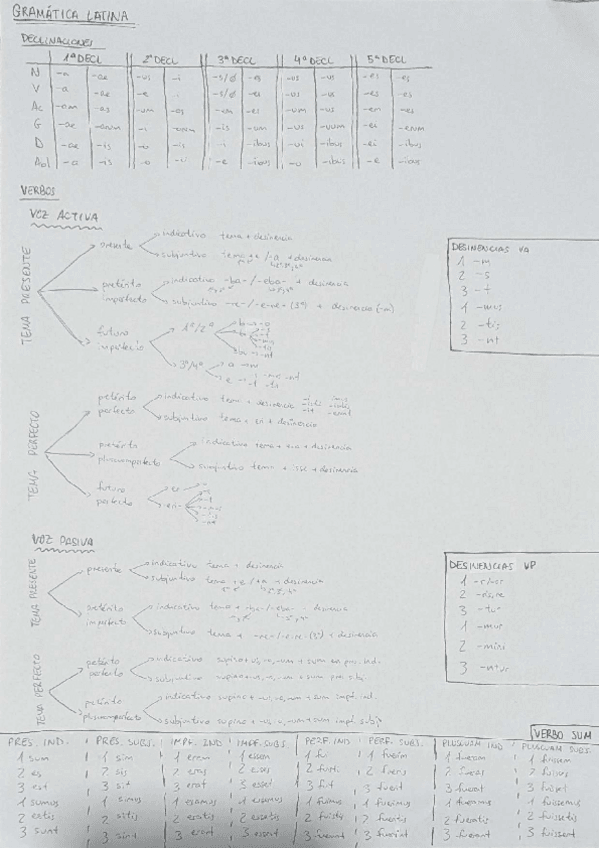 GRAMÁTICA LATINA
DECLINACIONES
1ª DECL 2ª DECL 3ª DECL 4ª DECL 5ª DECL
N -a -ae -us -i -s/ø -es -us -us -es -es
V -a -ae -e -i -s/ø -es -us -us -es -es
Ac -am -as -um -os -em -es -um -us -em -es
G -ae -arum -i -orum -is -um -us -uum -ei -erum
D -ae -is -o -is -i -ibus -ui -ibus -ei -ebus
Abl -a -is -o -is -e -ibus -u -ibus -e -ebus
VERBOS
VOZ ACTIVA
TEMA PRESENTE
presente
indicativo tema + desinencia
subjuntivo tema + e / -a + desinencia
pretérito imperfecto
indicativo -ba- / -eba- + desinencia
subjuntivo -re- / -e-re- (3ª) + desinencia (-m)
futuro imperfecto
1ª/2ª
3ª/4ª
DESINENCIAS VA
1 -m
2 -s
3 -t
1 -mus
2 -tis
3 -nt
TEMA PERFECTO
pretérito perfecto
indicativo tema + desinencia
subjuntivo tema + eri + desinencia
pretérito pluscuamperfecto
indicativo tema + era + desinencia
subjuntivo tema + isse + desinencia
futuro perfecto
er
eri
VOZ PASIVA
TEMA PRESENTE
presente
indicativo tema + desinencia
subjuntivo tema + e / + a + desinencia
pretérito imperfecto
indicativo tema + -ba- / -eba- desinencia
subjuntivo tema + -re- / -e-re- (3ª) + desinencia
DESINENCIAS VP
1 -r/-or
2 -ris, re
3 -tur
1 -mur
2 -mini
3 -ntur
TEMA PERFECTO
pretérito perfecto
indicativo supino + us, -a, -um + sum en pre. ind.
subjuntivo supino + us, -a, -um + sum pre. sbj.
pretérito pluscuamperfecto
indicativo supino + -us, -a, -um + sum impf. ind.
subjuntivo supino + -us, -a, -um + sum impf. subj.
VERBO SUM
PRES. IND. PRES. SUBJ. IMPF. IND IMPF. SUBJ. PERF. IND PERF. SUBJ. PLUSCUAM IND PLUSCUAM SUBJ.
1 sum 1 sim 1 eram 1 essem 1 fui 1 fuerim 1 fueram 1 fuissem
2 es 2 sis 2 eras 2 esses 2 fuisti 2 fueris 2 fueras 2 fuisses
3 est 3 sit 3 erat 3 esset 3 fuit 3 fuerit 3 fuerat 3 fuisset
1 sumus 1 simus 1 eramus 1 essemus 1 fuimus 1 fuerimus 1 fueramus 1 fuissemus
2 estis 2 sitis 2 eratis 2 essetis 2 fuistis 2 fueritis 2 fueratis 2 fuissetis
3 sunt 3 sint 3 erant 3 essent 3 fuerunt 3 fuerint 3 fuerant 3 fuissent